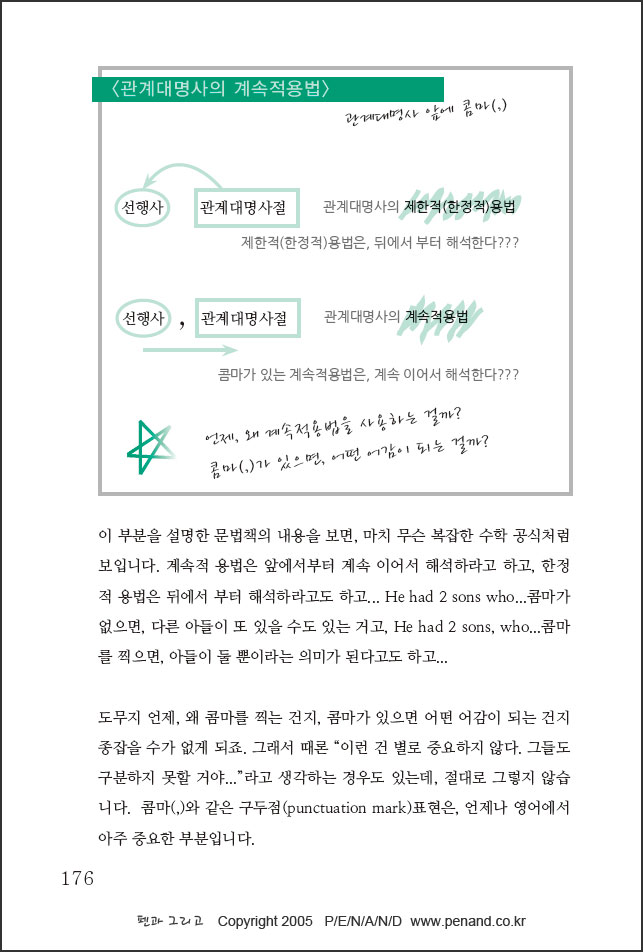 <관계대명사의 계속적용법>
관계대명사 앞에 콤마(,)
선행사 관계대명사절 관계대명사의 제한적(한정적)용법
제한적(한정적)용법은, 뒤에서 부터 해석한다???
선행사 , 관계대명사절 관계대명사의 계속적용법
콤마가 있는 계속적용법은, 계속 이어서 해석한다???
언제, 왜 계속적용법을 사용하는 걸까?
콤마(,)가 있으면, 어떤 어감이 되는 걸까?
이 부분을 설명한 문법책의 내용을 보면, 마치 무슨 복잡한 수학 공식처럼
보입니다. 계속적 용법은 앞에서부터 계속 이어서 해석하라고 하고, 한정
적 용법은 뒤에서 부터 해석하라고도 하고... He had 2 sons who...콤마가
없으면, 다른 아들이 또 있을 수도 있는 거고, He had 2 sons, who...콤마
를 찍으면, 아들이 둘 뿐이라는 의미가 된다고도 하고...
도무지 언제, 왜 콤마를 찍는 건지, 콤마가 있으면 어떤 어감이 되는 건지
종잡을 수가 없게 되죠. 그래서 때론 “이런 건 별로 중요하지 않다. 그들도
구분하지 못할 거야...”라고 생각하는 경우도 있는데, 절대로 그렇지 않습
니다. 콤마(,)와 같은 구두점(punctuation mark)표현은, 언제나 영어에서
아주 중요한 부분입니다.
176
펜과 그리고 Copyright 2005 P/E/N/A/N/D www.penand.co.kr